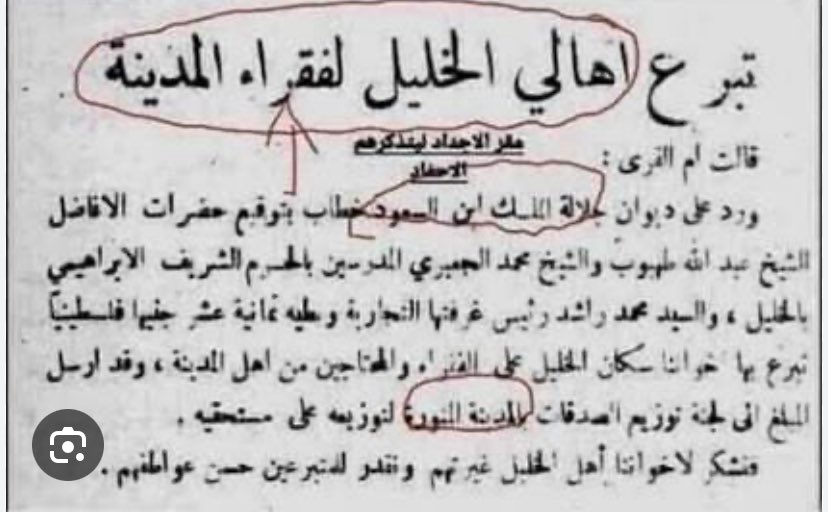 تبرع اهالي الخليل لفقراء المدينة
مفخر الاجداد ليتذكرهم
الاحفاد
قالت ام القرى :
ورد على ديوان جلالة الملك ابن السعود خطاب بتوقيع حضرات الافاضل
الشيخ عبد الله طهبوب والشيخ محمد الجعبري المدرسين بالحرم الشريف الابراهيمي
بالخليل ، والسيد محمد راشد رئيس غرفتها التجارية وطيه ثمانية عشر جنيها فلسطينيا
تبرع بها اخواننا سكان الخليل على الفقراء والمحتاجين من اهل المدينة ، وقد ارسل
المبلغ الى لجنة توزيع الصدقات بالمدينة المنورة لتوزيعه على مستحقيه .
فنشكر لاخواننا أهل الخليل غيرتهم ونقدر للمتبرعين حسن عواطفهم .